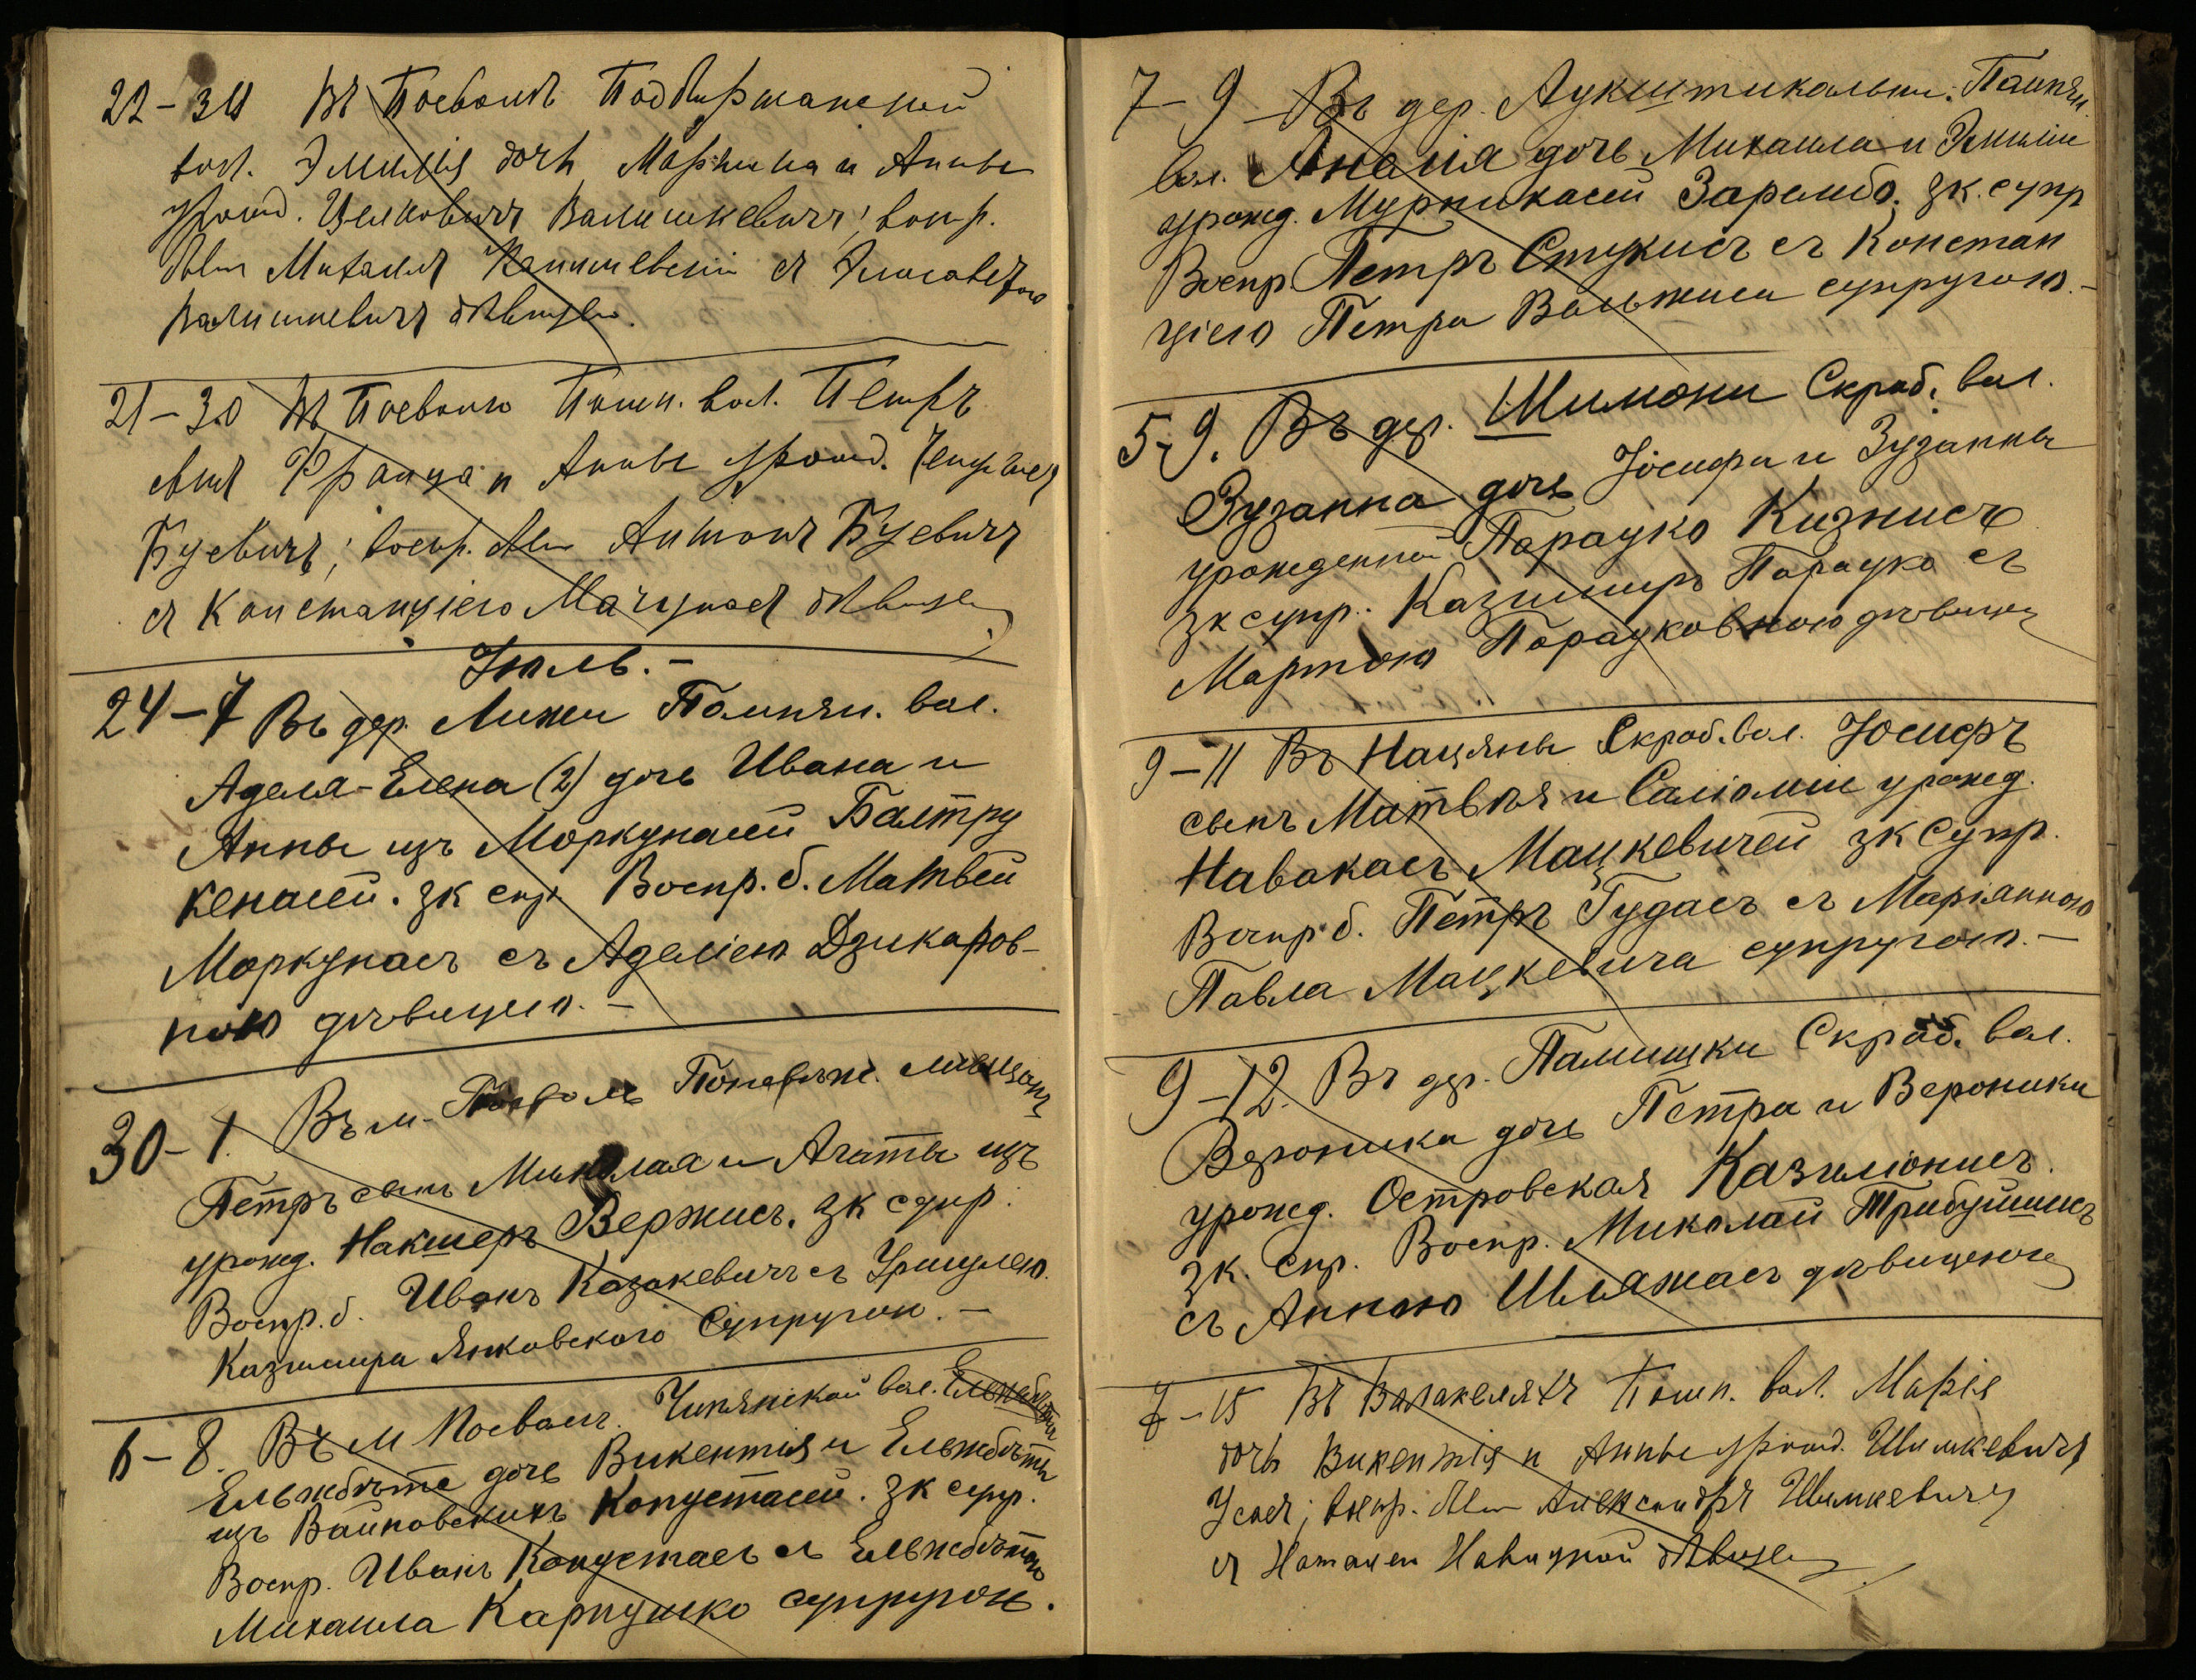 22-30 Въ Посволѣ Подбиржанской
вол. Эмилія дочь Мартина и Анны
урожд. Целковичъ Валишкевичъ; воспр.
были Михаилъ Канишевскій съ Элисаветою
Валишкевичъ дѣвицею.
21-30 Въ Посволю Помп. вол. Петръ
сынъ Франца и Анны урожд.
Буевичъ; воспр. были Антонъ Буевичъ
съ Констанціею Мачунасъ дѣвицею
Іюль.-
24-4 Въ дер. Лижи Помпян. вол.
Аделя-Елена (2) дочь Ивана и
Анны изъ Моркунасей Балтру
кенасей. зк спр. Воспр. б. Матвей
Моркунасъ съ Аделіею Дзикаров-
ною дѣвицею.-
30-1. Въ м. Посволь Поневѣж. мѣщанъ
Петръ сынъ Миколая и Агаты изъ
урожд. Накшеръ Вержисъ. зк супр.
Воспр. б. Иванъ Казакевичъ съ Уршулею
Казимира Янковского Супругою.-
6-8. Въ м Посволъ. Чипянской вол.
Ельжбѣта дочь Викентія и Ельжбѣты
изъ Войновскихъ Копустасей. зк супр.
Воспр. Иванъ Копустасъ съ Ельжбѣтою
Михаила Карпушко супругою.
7-9 Въ дер. Аукштикальни. Помпян.
вол. Анелія дочь Михаила и Эмиліи
урожд. Мурникасей Зарембо. зк. супр
Воспр. Петръ Стукисъ съ Констан
ціею Петра Вальжиса супругою.-
5-9. Въ дер. Шимони Скраб. вол.
Зузанна дочь Іосифа и Зузанны
урожденной Парауко Кизнисъ
зк супр. Казимиръ Порауко съ
Мартою Порауковною дѣвицею
9-11 Въ Нацяны Скраб. вол. Іосифъ
сынъ Матвѣя и Саліоміи урожд.
Навакасъ Мацкевичей зк Супр.
Воспр б. Петръ Гудасъ съ Маріанною
Павла Мацкевича супругою.-
9-12. Въ дер. Памишки Скраб. вол.
Вероника дочь Петра и Вероники
урожд. Островская Казилюнисъ.
зк. спр. Воспр. Миколай Трибуйшисъ
съ Анною Шляжасъ дѣвицею
7-15 Въ Валакеляхъ Помп. вол. Марія
дочь Викентія и Анны урожд. Шимкевичъ
Усасъ; воспр. были Александръ Шимкевичъ
съ Наталіею Навицкой дѣвицею